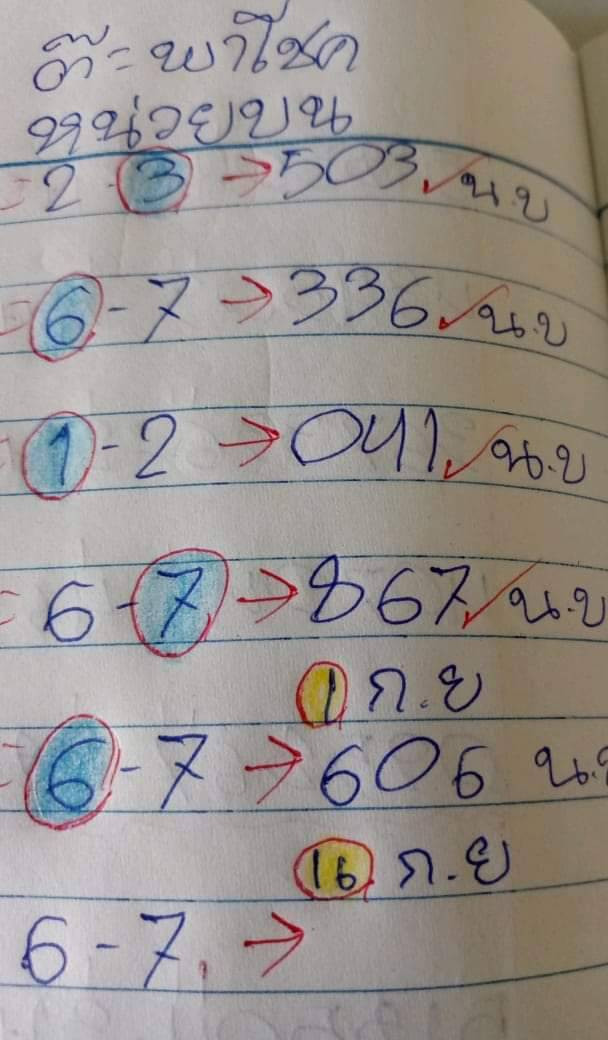 ต๊ะ=พาโชค
หน่วยบน
= 2-3 → 503 ✓ น.บ
= 6-7 → 336 ✓ น.บ
= 1-2 → 041 ✓ น.บ
= 6-7 → 867 ✓ น.บ
1 ก.ย
= 6-7 → 606 น.บ
16 ก.ย
6-7 →